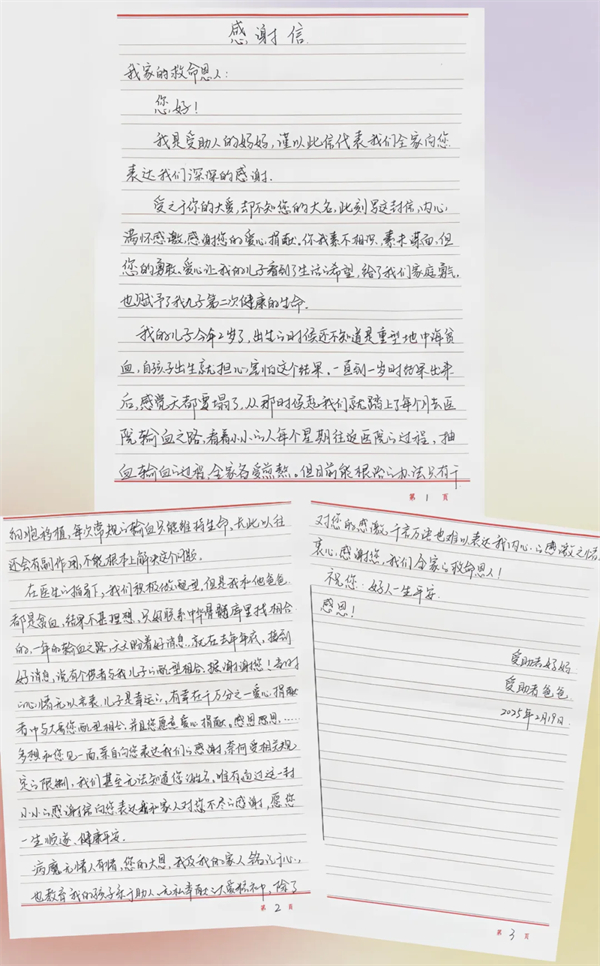 感谢信
我家的救命恩人：
您好！
我是受助人的妈妈，谨以此信代表我们全家向您
表达我们深深的感谢.
受之于你的大爱，却不知您的大名，此刻写这封信，内心
满怀感激，感谢您的爱心捐献。你我素不相识，素未谋面，但
您的勇敢、爱心让我的儿子看到了生活的希望，给了我们家庭勇气，
也赋予了我儿子第二次健康的生命.
我的儿子今年2岁了，出生的时候还不知道是重型地中海贫
血，自孩子出生就担心害怕这个结果，一直到一岁时结果出来
后，感觉天都要塌了，从那时候起我们就踏上了每个月去医
院输血之路，看着小小的人每个星期往返医院的过程，抽
血输血的过程，全家备受煎熬。但目前能根治的办法只有干
第1页
细胞移植，每次常规的输血只能维持生命，长此以往
还会有副作用，不能根本上解决这个问题.
在医生的指引下，我们积极做配型，但是我和他爸爸
都是贫血，结果不甚理想，只好联系中华骨髓库里找相合
的，一年的输血之路，天天盼着好消息，就在去年年底，接到
好消息，说有个供者与我儿子的配型相合，谢谢您！当时
的心情无以言表，儿子是幸运的，有幸在千万分之一爱心捐献
者中与大哥您配型相合，并且您愿意爱心捐献。感恩感恩……
多想和您见一面，亲自向您表达我们的感谢，奈何受相关规
定的限制，我们甚至无法知道您的姓名，唯有通过这一封
小小的感谢信向您表达我和家人对您不尽的感谢，愿您
一生顺遂、健康平安.
病魔无情人有情，您的大恩，我及我的家人铭记于心，
也教育我的孩子乐于助人、无私奉献的大爱精神，除了
第2页
对您的感激，千言万语也难以表达我内心的感激之情.
衷心感谢您，我们全家的救命恩人！
祝您：好人一生平安.
感恩！
受助者妈妈
受助者爸爸
2025年2月19日
第3页